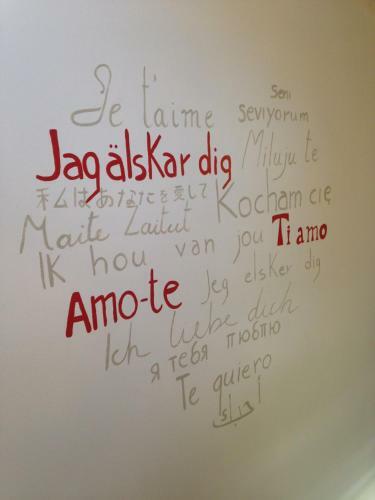 Je t'aime
Seni
seviyorum
Jag älskar dig
Miluju te
私は、あなたを愛して
Kocham cię
Maite Zaitut
Ti amo
IK hou van jou
Amo-te
Jeg elsker dig
Ich liebe dich
я тебя люблю
Te quiero